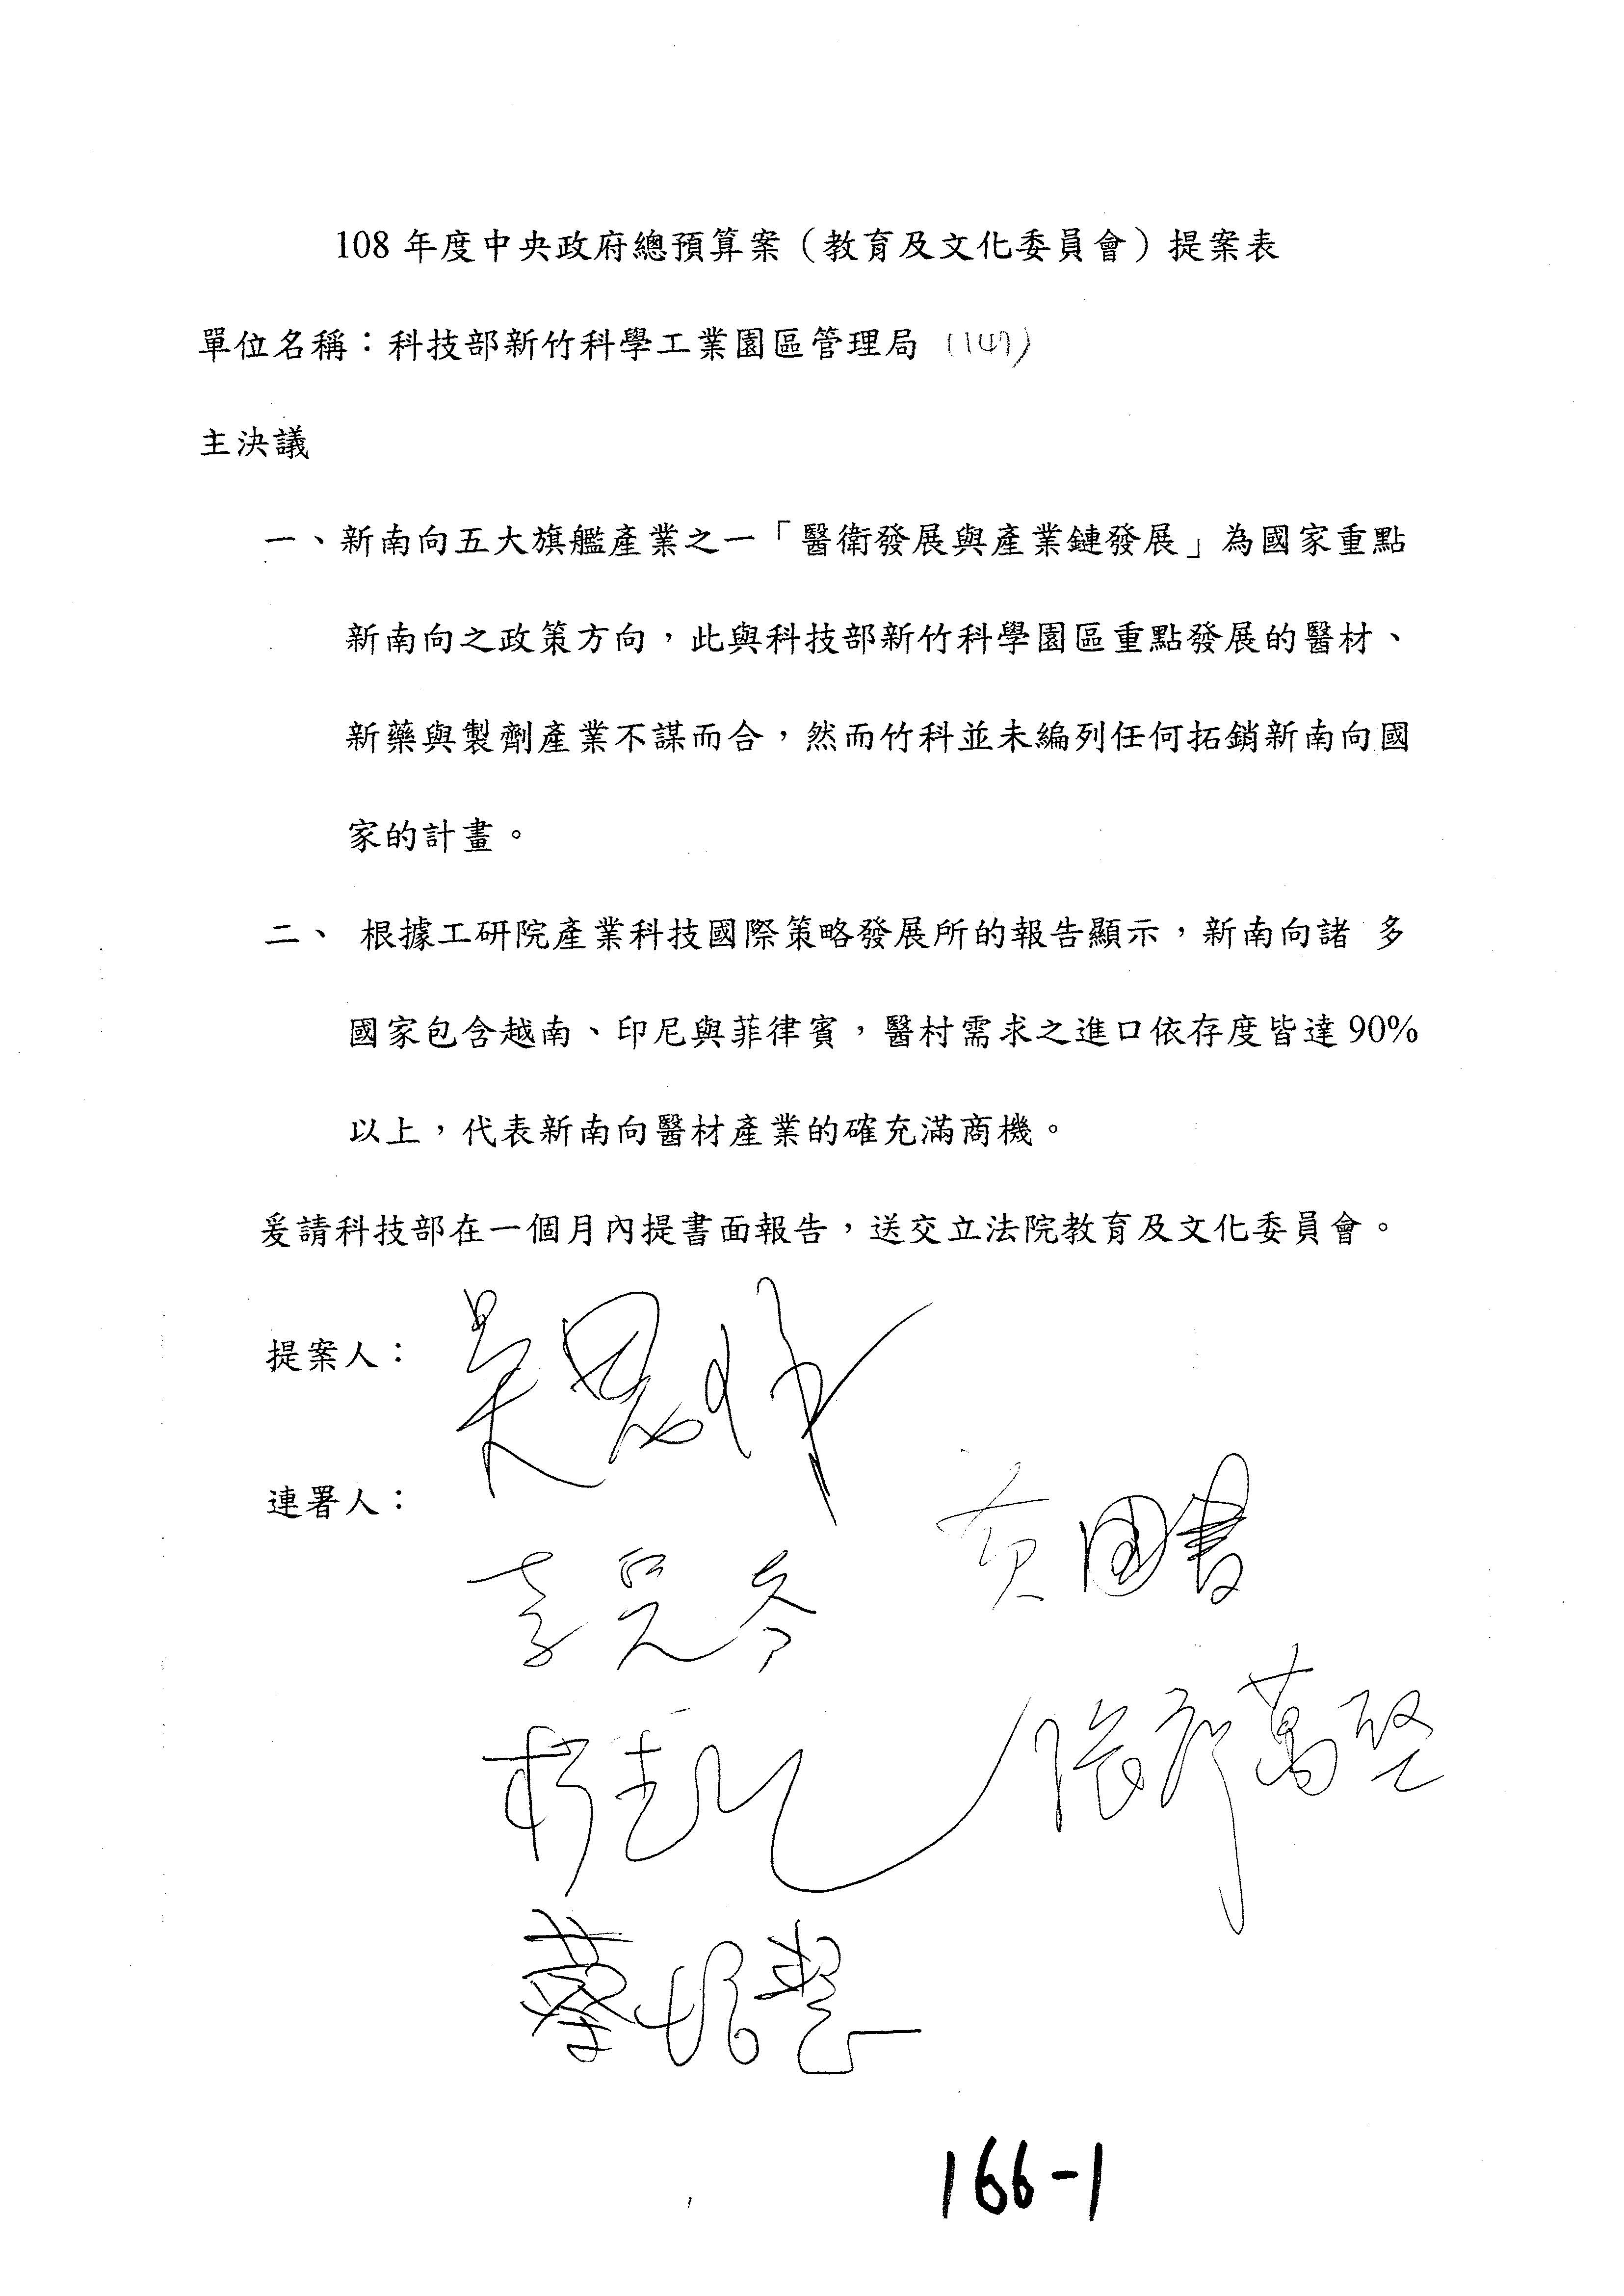 108 年度中央政府總預算案（教育及文化委員會）提案表
單位名稱：科技部新竹科學工業園區管理局 (147)
主決議
一、新南向五大旗艦產業之一「醫衛發展與產業鏈發展」為國家重點
新南向之政策方向，此與科技部新竹科學園區重點發展的醫材、
新藥與製劑產業不謀而合，然而竹科並未編列任何拓銷新南向國
家的計畫。
二、 根據工研院產業科技國際策略發展所的報告顯示，新南向諸 多
國家包含越南、印尼與菲律賓，醫村需求之進口依存度皆達 90%
以上，代表新南向醫材產業的確充滿商機。
爰請科技部在一個月內提書面報告，送交立法院教育及文化委員會。
提案人：
吳思瑤
連署人：
黃國書
李麗芬
張廖萬堅
蔡培慧
166-1